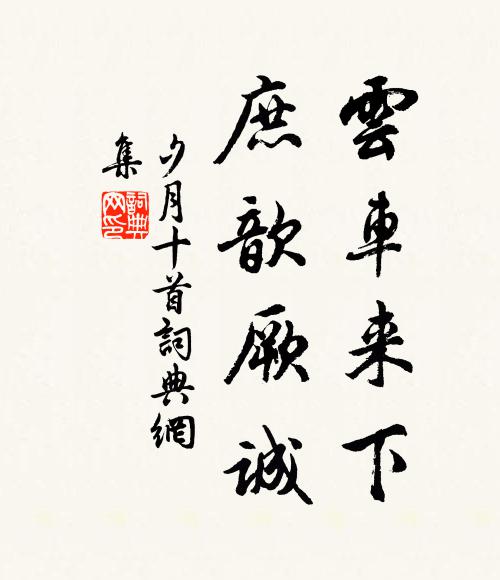 雲車来下
庶歆厥誠
夕月十首詞典網
集
詞典网印